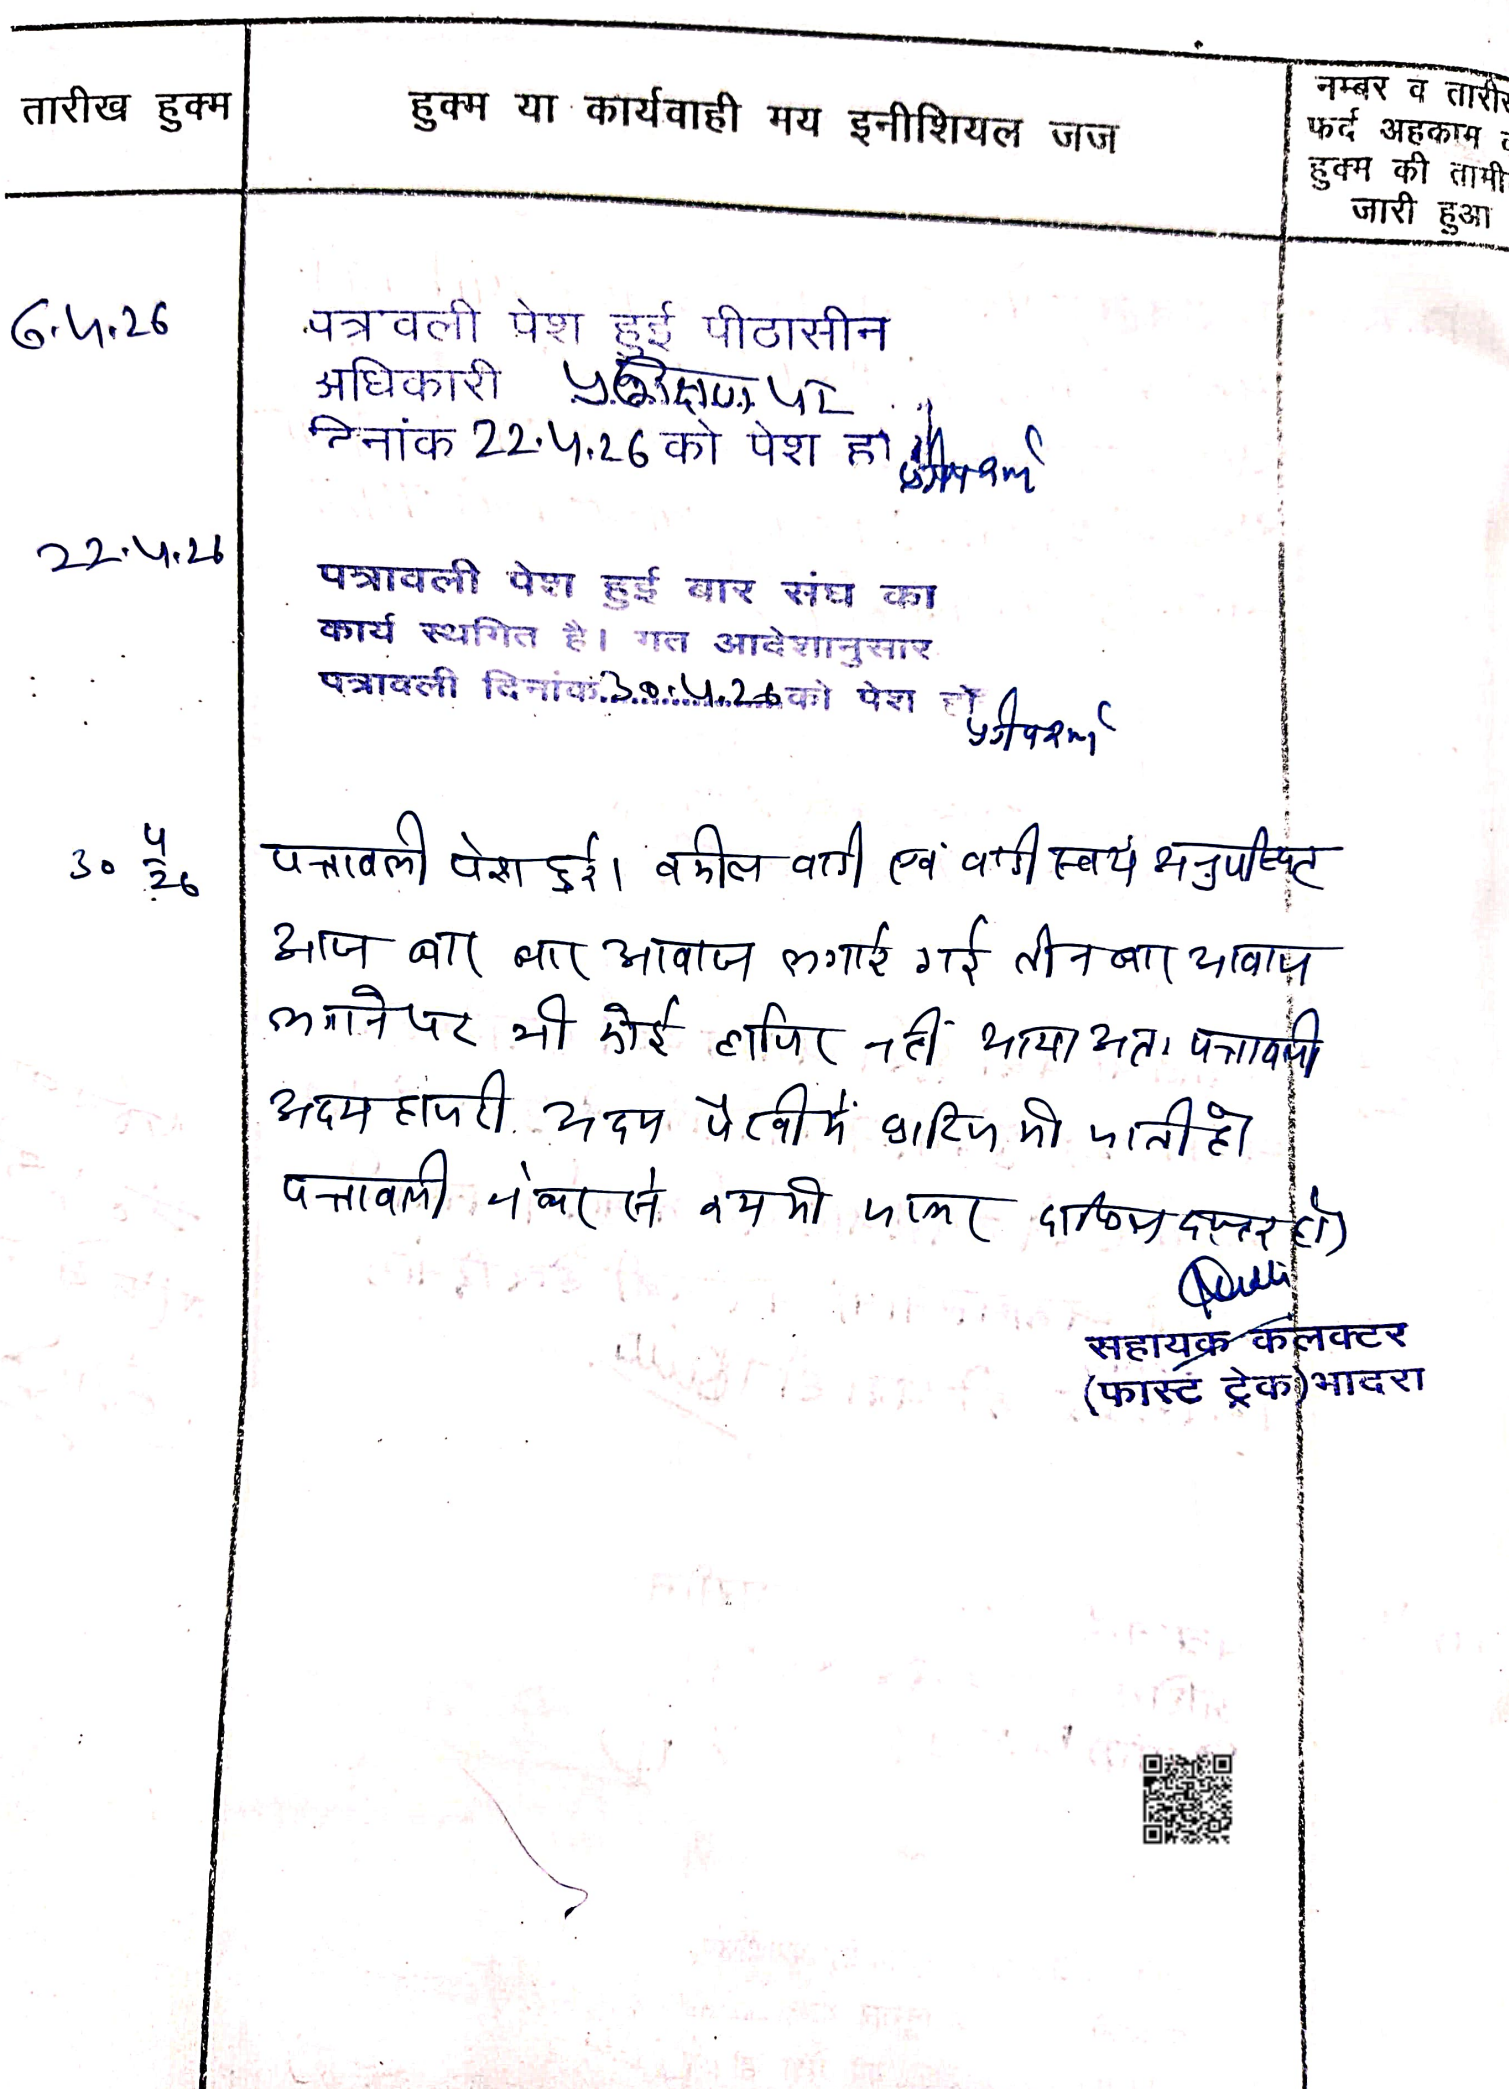 तारीख हुक्म
हुक्म या कार्यवाही मय इनीशियल जज
नम्बर व तारीख
फर्द अहकाम
हुक्म की तामी
जारी हुआ
6.4.26
पत्रावली पेश हुई पीठासीन
अधिकारी प्रशिक्षण पर
दिनांक 22.4.26 को पेश हो
22.4.26
पत्रावली पेश हुई बार संघ का
कार्य स्थगित है। गत आदेशानुसार
पत्रावली दिनांक 30.4.26 को पेश हो
30 4/26
पत्रावली पेश हुई। वकील वादी एवं वादी स्वयं अनुपस्थित
आज बार बार आवाज लगाई गई तीन बार आवाज
लगाने पर भी कोई हाजिर नहीं आया अतः पत्रावली
अदम हाजरी अदम पैरवी में खारिज की जाती है।
पत्रावली नंबर से कम की जाकर दाखिल दफ्तर हो।
सहायक कलक्टर
(फास्ट ट्रेक) भादरा